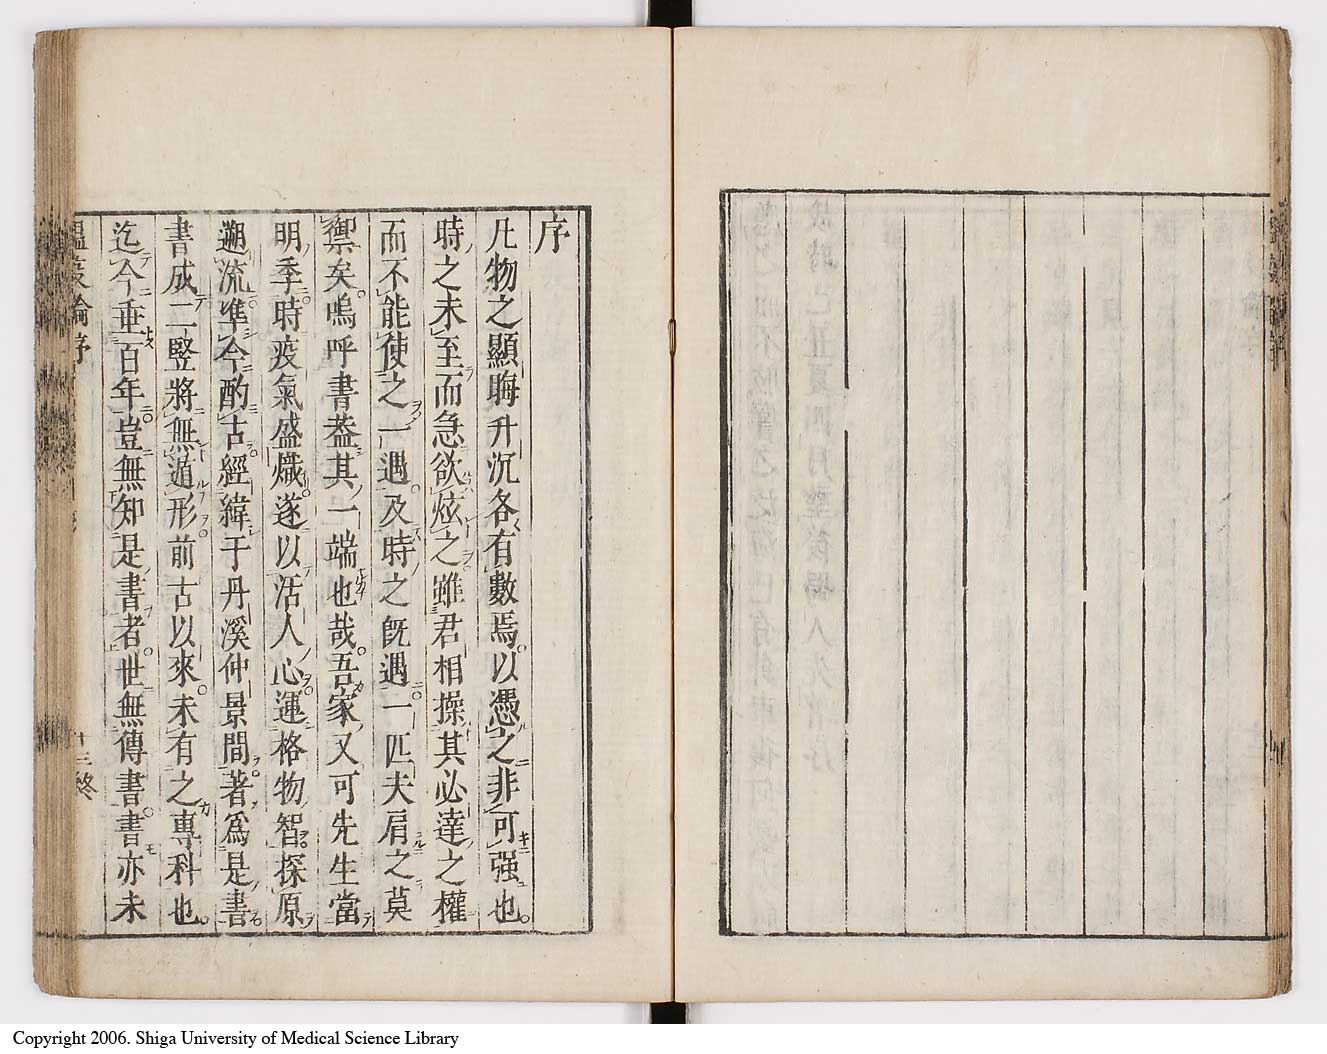 序
凡物之顯晦升沉各有數焉以憑之非可强也
時之未至而急欲炫之雖君相操其必達之權
而不能使之一遇及時之旣遇一匹夫肩之莫
禦矣嗚呼書葢其一端也哉吾家又可先生當
明季時疫氣盛熾遂以活人心運格物智探原
遡流準今酌古經緯于丹溪仲景間著爲是書
書成二竪將無遁形前古以來未有之專科也
迄今垂百年豈無知是書者世無傳書書亦未
溫疫論序
十三終
Copyright 2006. Shiga University of Medical Science Library